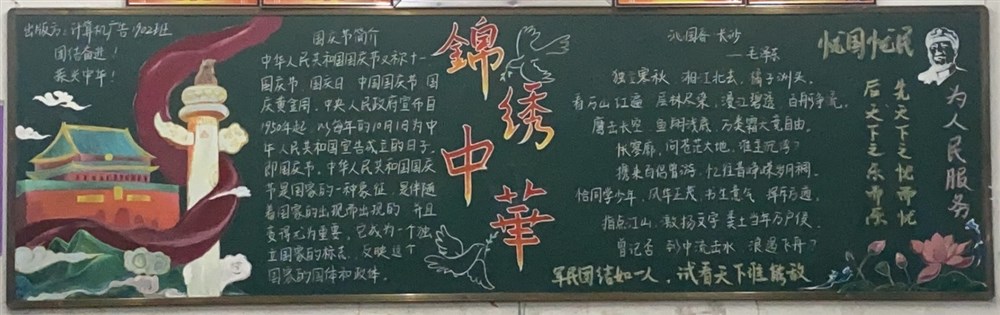 出版方：计算机广告1902班
团结奋进！
振兴中华！
国庆节简介
中华人民共和国国庆节又称十一
国庆节 国庆日 中国国庆节 国
庆黄金周。中央人民政府宣布自
1950年起，以每年的10月1日为中
华人民共和国宣告成立的日子。
即国庆节。中华人民共和国国庆
节是国家的一种象征，是伴随
着国家的出现而出现的，并且
变得尤为重要。它成为一个独
立国家的标志，反映这个
国家的国体和政体。
錦绣中華
沁园春·长沙
—毛泽东
独立寒秋，湘江北去，橘子洲头。
看万山红遍，层林尽染，漫江碧透，百舸争流。
鹰击长空，鱼翔浅底，万类霜天竞自由。
怅寥廓，问苍茫大地，谁主沉浮？
携来百侣曾游，忆往昔峥嵘岁月稠。
恰同学少年，风华正茂，书生意气，挥斥方遒。
指点江山，激扬文字，粪土当年万户侯。
曾记否，到中流击水，浪遏飞舟？
军民团结如一人，试看天下谁能敌
忧国忧民
先天下之忧而忧
后天下之乐而乐
为人民服务